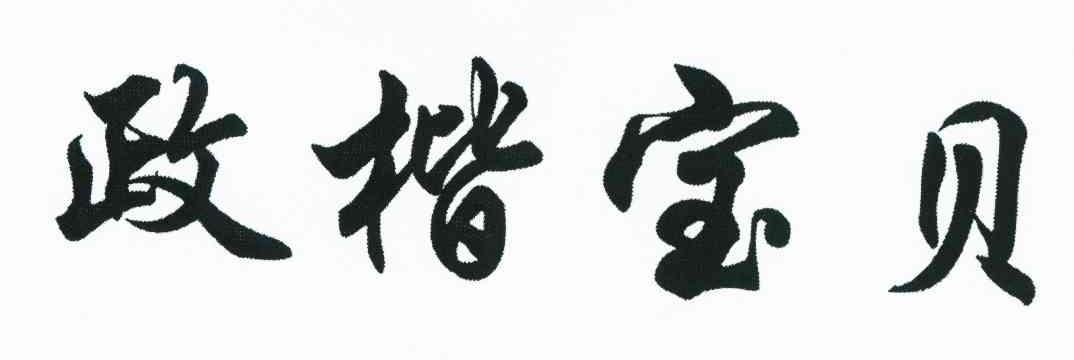 政楷宝贝